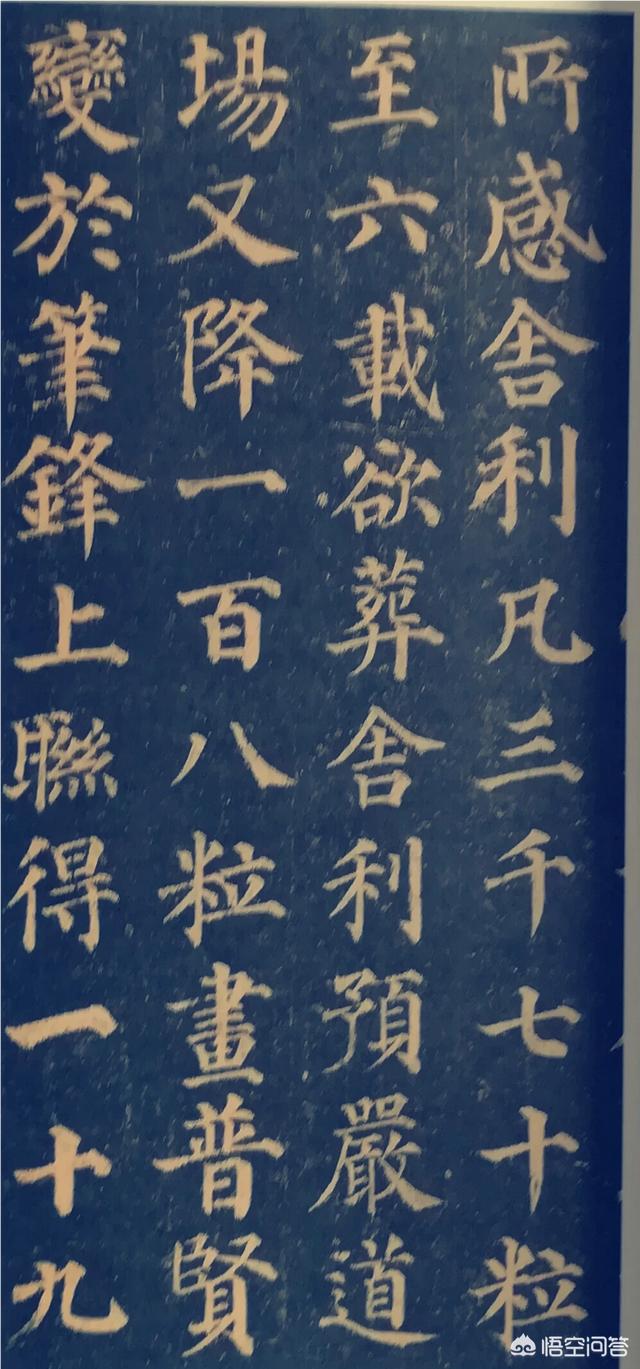 所感舍利凡三千七十粒
至六載欲葬舍利預嚴道
場又降一百八粒畫普賢
變於筆鋒上聯得一十九
悟空问答